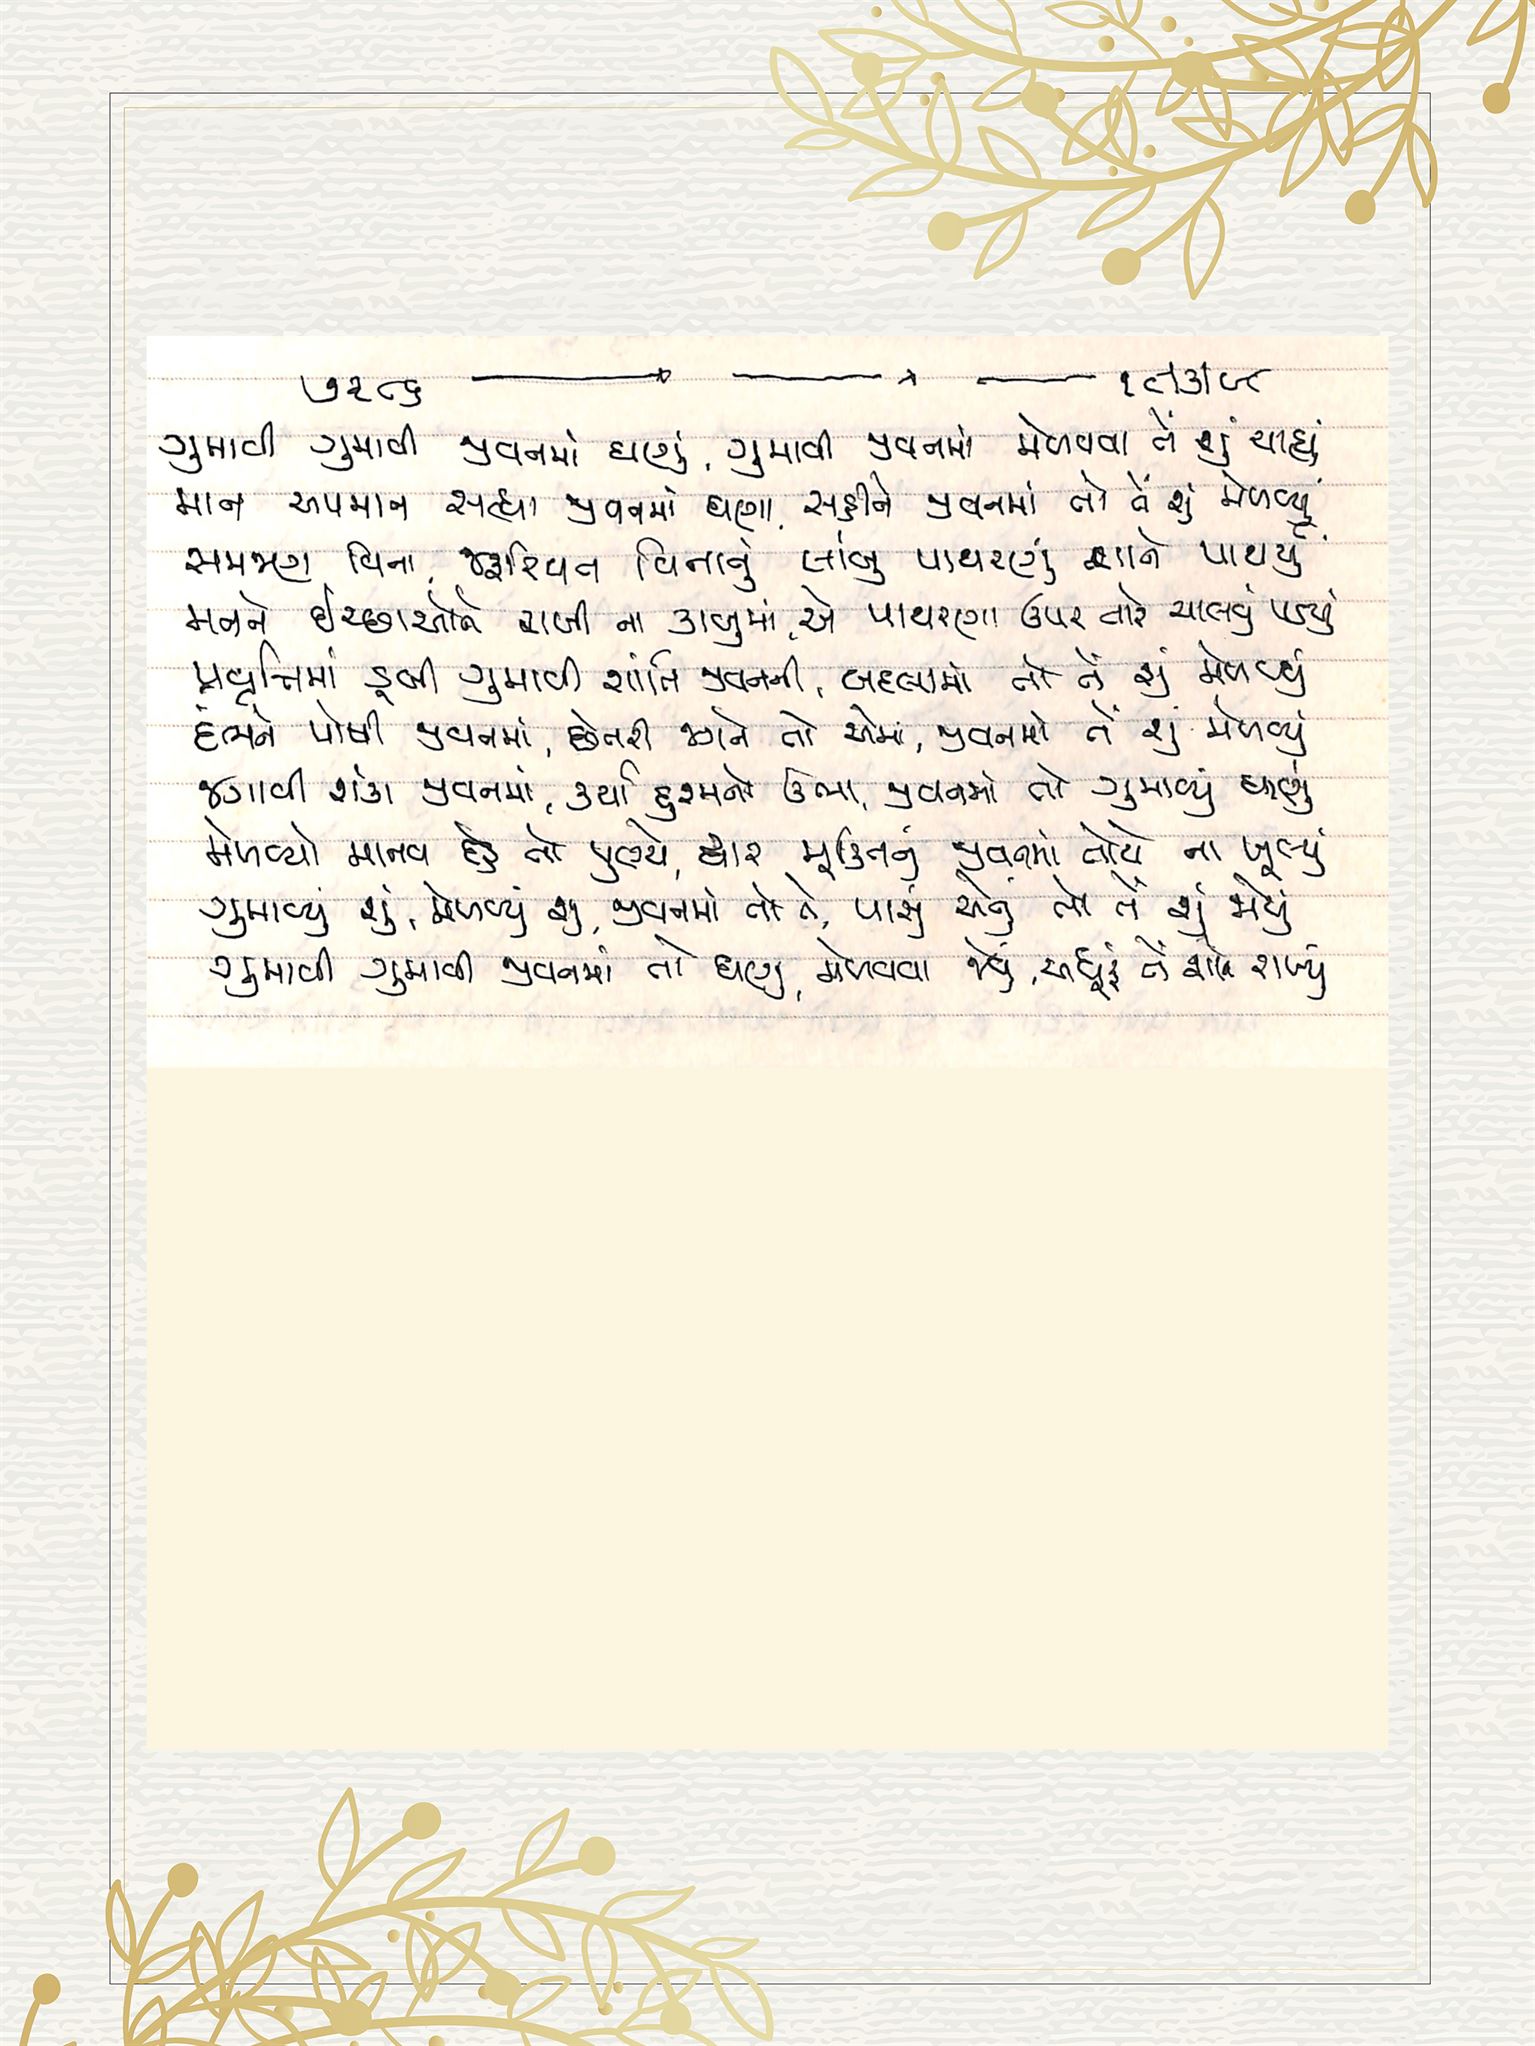 ૭૨૮૬
ગુમાવી ગુમાવી જીવનમાં ઘણું, ગુમાવી જીવનમાં મેળવવા તેં શું ચાહ્યું
માન અપમાન સહ્યા જીવનમાં ઘણા, સહીને જીવનમાં તો તેં શું મેળવ્યું
સમજણ વિના, જરૂરિયાત વિનાનું લાંબુ પાથરણું શાને પાથર્યું
મનને ઈચ્છાઓને રાખી ના કાબુમાં, એ પાથરણા ઉપર તારે ચાલવું પડ્યું
પ્રવૃત્તિમાં ડૂબી ગુમાવી શાંતિ જીવનની, બદલામાં તો તેં શું મેળવ્યું
દંભને પોષી જીવનમાં, છેતરી જાતને તો એમાં, જીવનમાં તેં શું મેળવ્યું
જગાવી શંકા જીવનમાં, કર્યા દુશ્મનો ઉભા, જીવનમાં તો ગુમાવ્યું ઘણું
મેળવ્યો માનવ દેહ તો પુણ્યે, દ્વાર મૂક્તિનું જીવનમાં તોયે ના ખૂલ્યું
ગુમાવ્યું શું, મેળવ્યું શુ, જીવનમાં તો તે, પાસું એનું તો તેં શું જોયું
ગુમાવી ગુમાવી જીવનમાં તો ઘણુ, મેળવવા જેવું, અધૂરૂં તેં શાને રાખ્યું